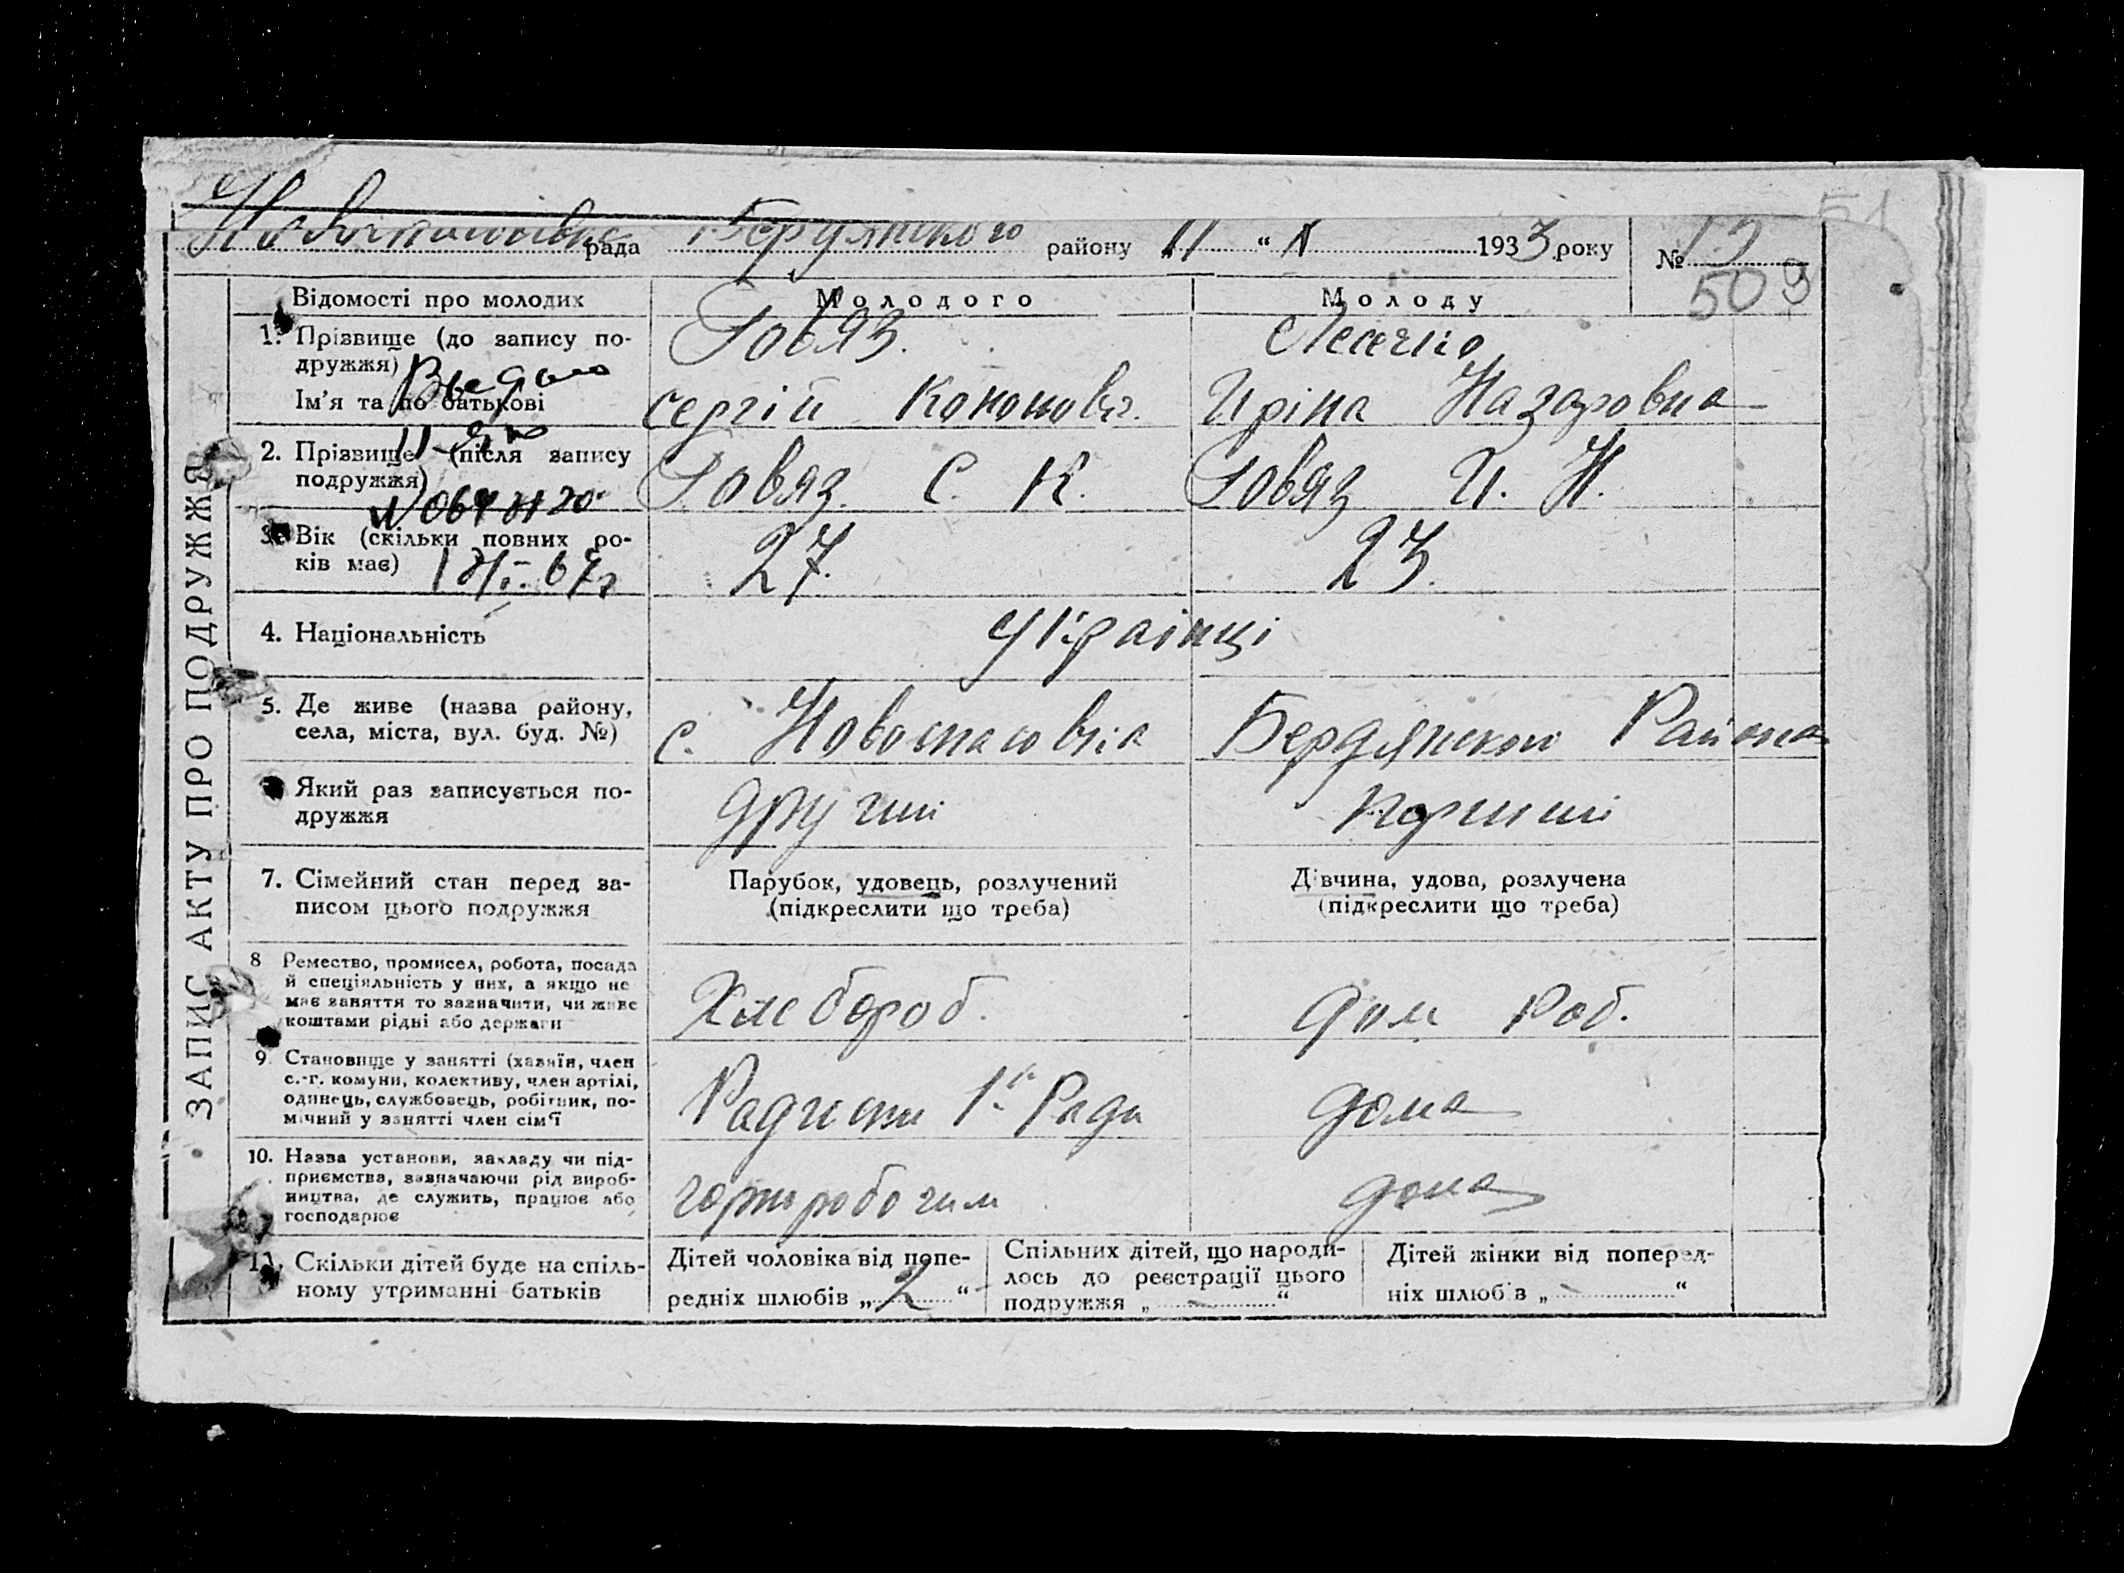 51
рада Бердянского району „11 “ 1 1933 року №
50 9
ЗАПИС АКТУ ПРО ПОДРУЖЖЯ
Відомості про молодих Молодого Молоду
1. Прізвище (до запису по-
дружжя)
Ім'я та по батькові
Говяз.
Сергій Кононович.
Ирiна Назаровна
2. Прізвище (після запису
подружжя)
Говяз С. К.
Говяз И. Н.
3. Вік (скільки повних ро-
ків має)
27.
23.
4. Національність
Українці
5. Де живе (назва району,
села, міста, вул. буд. №)
с. Новоспасовка Бердянского Района
Який раз записується по-
дружжя
другий
7. Сімейний стан перед за-
писом цього подружжя
Парубок, удовець, розлучений
(підкреслити що треба)
Дівчина, удова, розлучена
(підкреслити що треба)
8 Ремество, промисел, робота, посада
й спеціяльність у них, а якщо не
має заняття то зазначити, чи живе
коштами рідні або держави
Хлебороб.
Дом Роб.
9. Становище у занятті (хазяїн, член
с.-г. комуни, колективу, член артілі,
одинець, службовець, робітник, по-
мічний у занятті член сім'ї
дома
10. Назва установи, закладу чи під-
приємства, зазначаючи рід вироб-
ництва, де служить, працює або
господарює
дома
11. Скільки дітей буде на спіль-
ному утриманні батьків
Дітей чоловіка від попе-
редніх шлюбів „ 2 “
Спільних дітей, що народи-
лось до реєстрації цього
подружжя „ “
Дітей жінки від поперед-
ніх шлюбів „ “